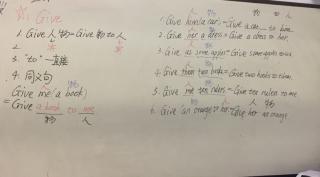 1. Give
1. Give 人 物 = Give 物 to 人
2.
3. "to" 一直接
4. 同义句
物
Give me a book
= Give a book to me
物 人
物 人
1. Give him a car = Give a car to him
2. Give her a dress = Give a dress to her
3. Give us some apples = Give some apples to us
4. Give them two books = Give two books to them
5. Give me ten rulers = Give ten rulers to me
人 物
6. Give an orange to her = Give her an orange